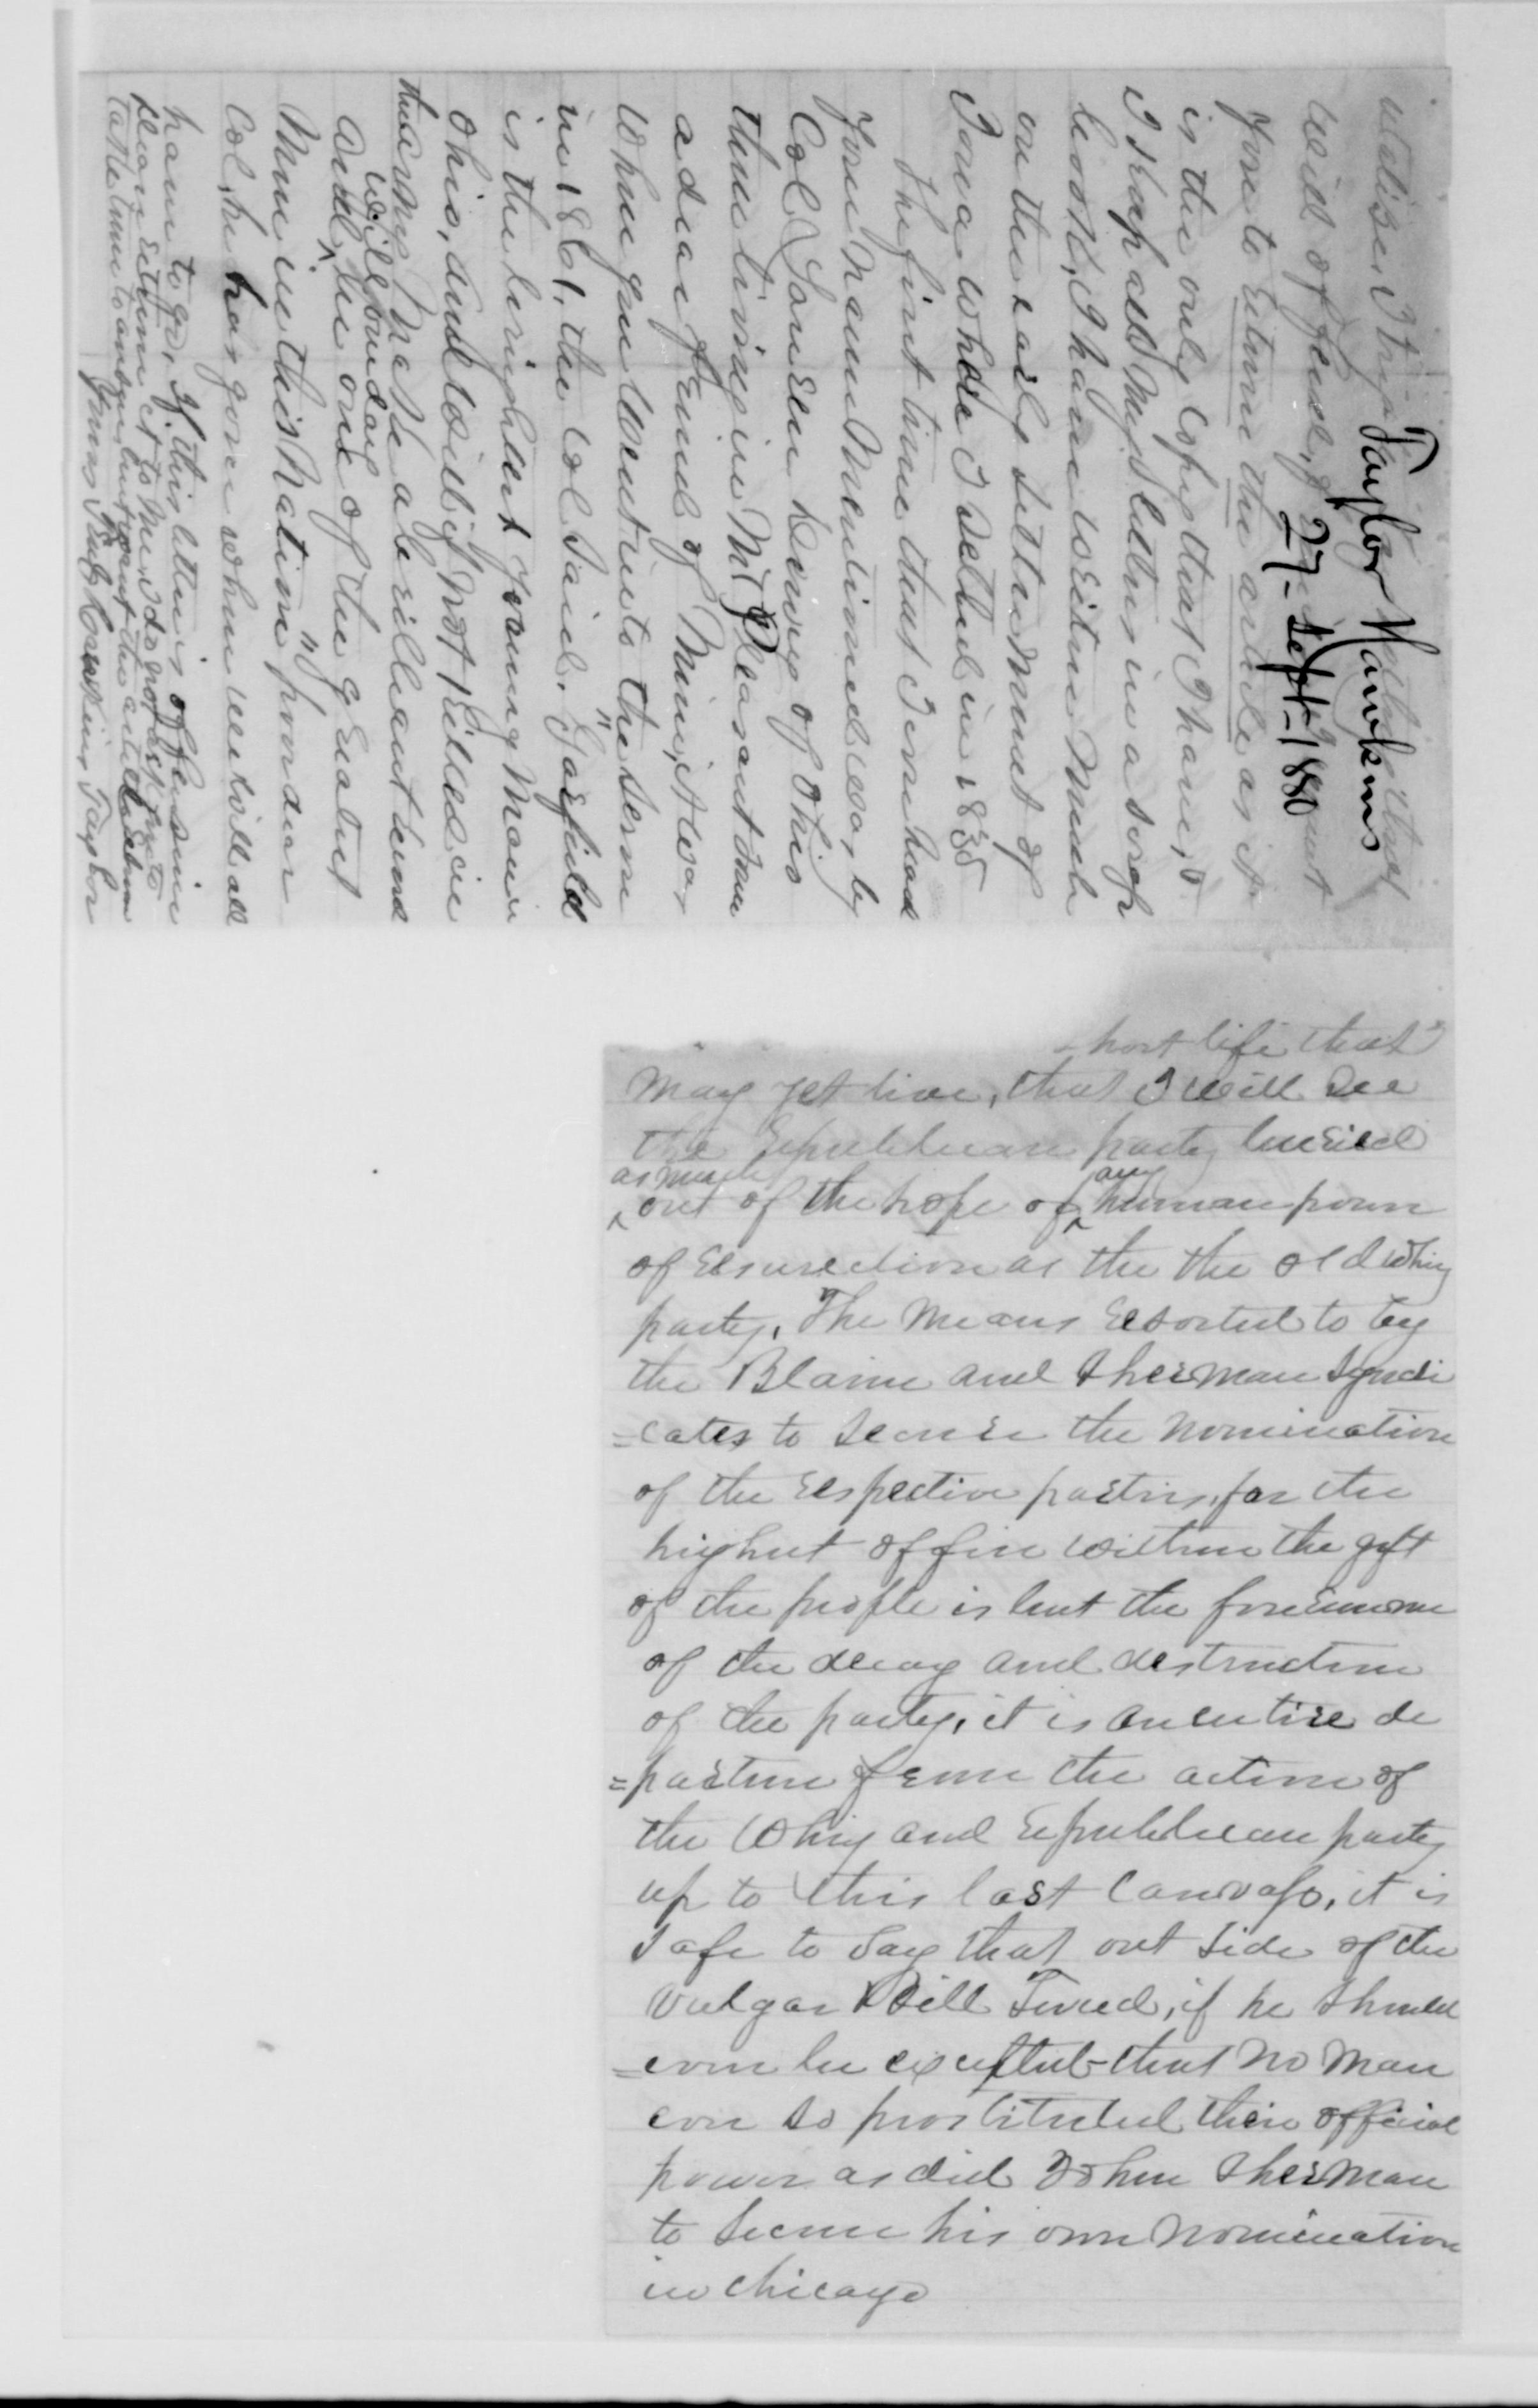 Taylor Hawkins
27 - Sept - 1880
will offend,
for to return the article as it
is the only copy that I have,
I Keep all My letters in a scrap
book, I have written Much
on the early settlement of
Iowa where I settled in 1835
The first time that I ever heard
your name Mentioned was by
Col Lauren Dewey of Ohio
then living in Mt Pleasant Iowa
a dear friend of Mine, it was
when you went into the service
in 1861, the Col Said, "Garfield
is the brightest young Man in
Ohio, and will if not Killed in
the army Make a brilliant mark
and will one day be one of the greatest
Men in this Nation" poor dear
Col, he has gone where we will all
have to go. If this letter is offensive
return it to Me, do not ask you to
take time to answer but want the article Return
James Hawkins Taylor
short life that I
May yet live, that I will See
the Republican party buried
as much
out of the hope of any human power
of resurection as the the old Whig
party. The Means resorted to by
the Blaine and Sherman Syndi
=cates to Secure the Nomination
of the respective parties, for the
highest office within the gift
of the people is but the forerunner
of the decay and destruction
of the party, it is an entire de
=parture from the action of
the Whig and republican party
up to this last Canvass, it is
Safe to Say that out Side of the
vulgar Bill Tweed, if he Should
=even be excepted - that No Man
ever So prostituted their official
power as did John Sherman
to Secure his own Nomination
in Chicago